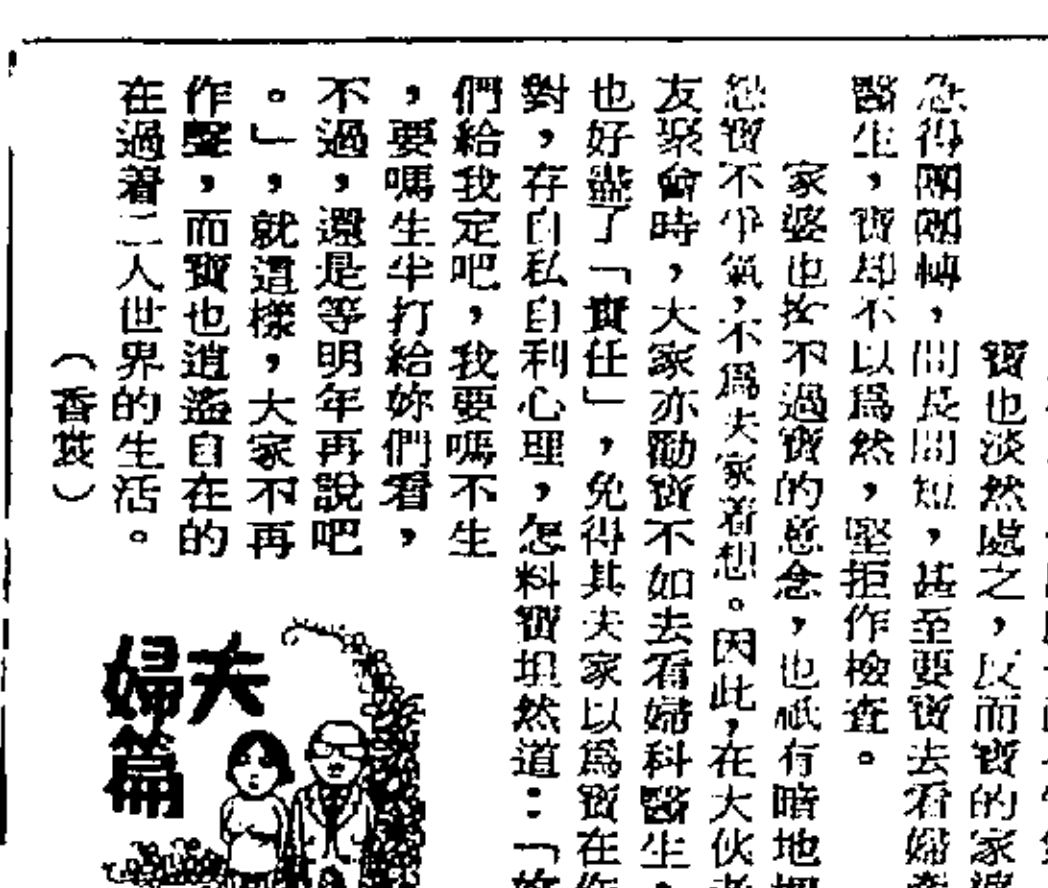 寶也淡然處之，反而寶的家婆
急得團團轉，問長問短，甚至要寶去看婦產
醫生，寶却不以爲然，堅拒作檢查。
家婆也拗不過寶的意念，也祇有暗地
怨寶不爭氣，不爲夫家着想。因此，在大伙
友聚會時，大家亦勸寶不如去看婦科醫生，
也好盡了「責任」，免得其夫家以爲寶在作
對，存自私自利心理，怎料寶坦然道：「
們給我定吧，我要嗎不生
，要嗎生半打給妳們看，
不過，還是等明年再說吧
。」，就這樣，大家不再
作聲，而寶也逍遙自在的
在過着二人世界的生活。
（香裳）
夫婦
篇